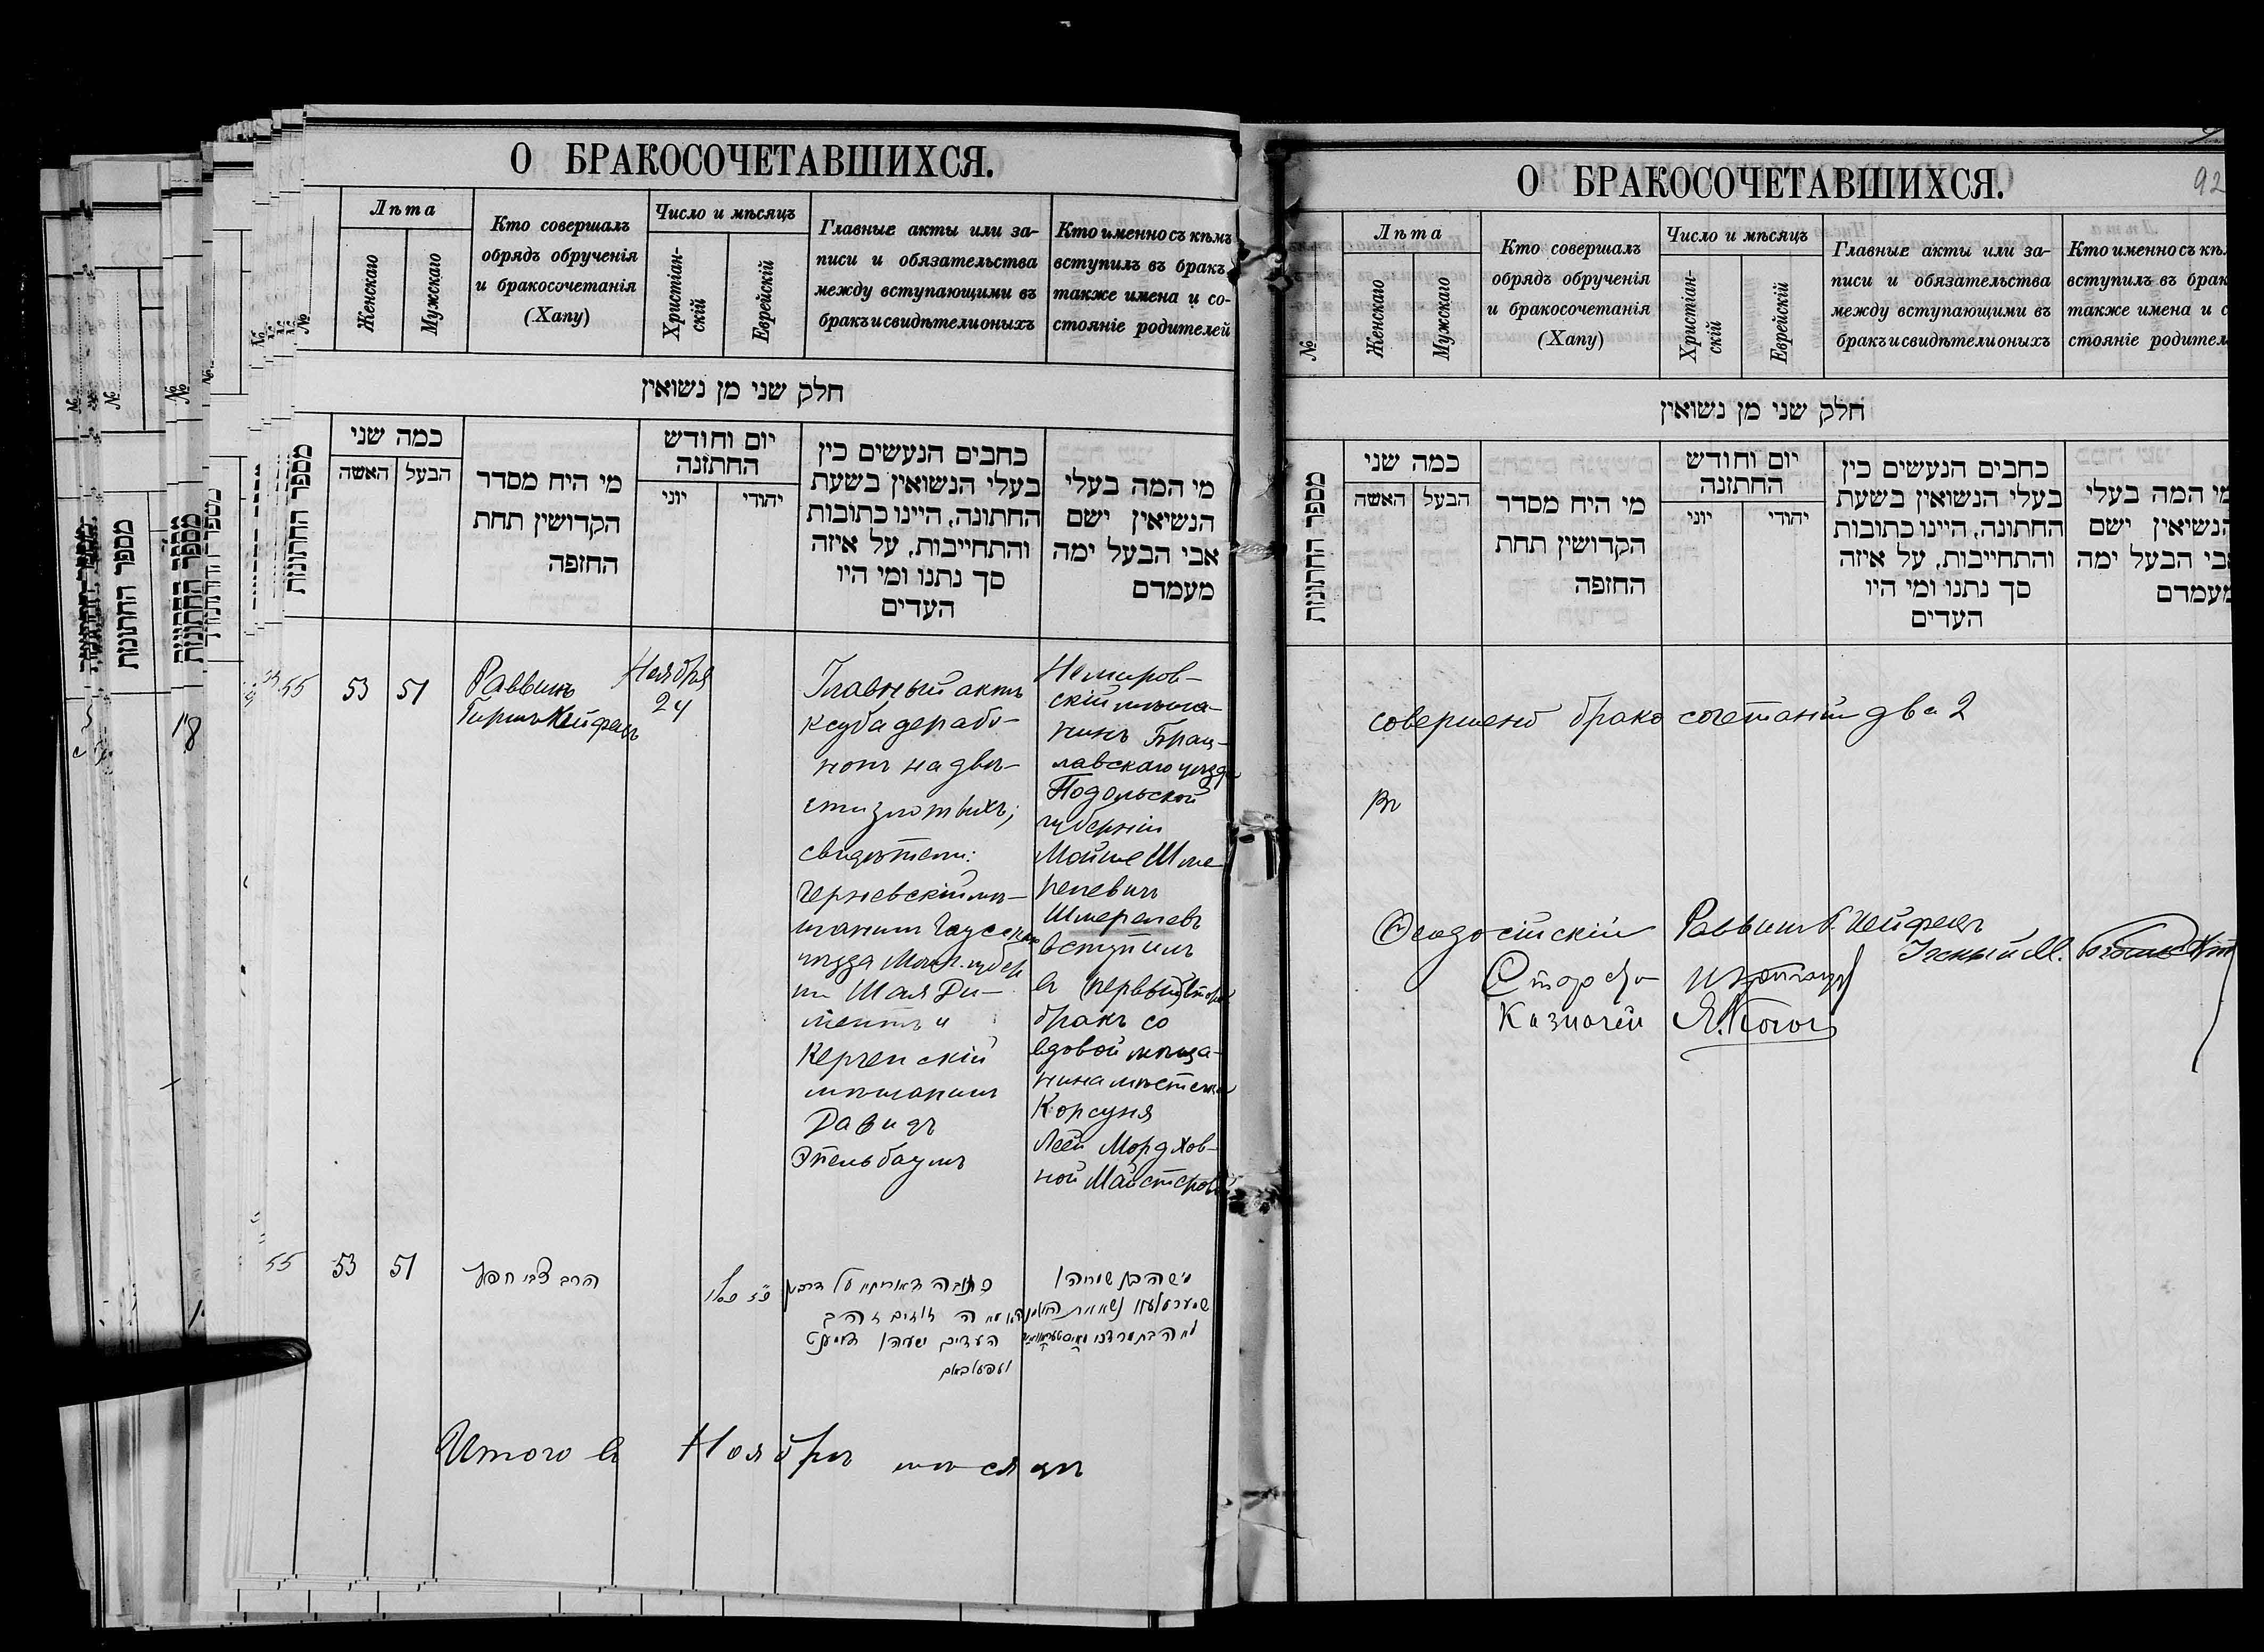 О БРАКОСОЧЕТАВШИХСЯ.
№
Лѣта
Женскаго
Мужскаго
Кто совершалъ
обрядъ обрученія
и бракосочетанія
(Хапу)
Число и мѣсяцъ
Христіан-
скій
Еврейскій
Главные акты или за-
писи и обязательства
между вступающими въ
бракъ и свидѣтели оныхъ
Кто именно съ кѣмъ
вступилъ въ бракъ
также имена и со-
стояніе родителей
חלק שני מן נשואין
מספר החתונות
כמה שני
האשה
הבעל
מי היח מסדר
הקדושין תחת
החזפה
יום וחודש
החתזנה
יוני
יהודי
כחבים הנעשים כין
בעלי הנשואין בשעת
החתונה, היינו כתובות
והתחייבות, על איזה
סך נתנו ומי היו
העדים
מי המה בעלי
הנשיאין ישם
אבי הבעל ימה
מעמדם
55
53
51
Раввинъ
Гиршъ Хейфецъ
Ноября
24
Главный актъ
ксуба дерабо-
нонъ на двѣ-
сти злотыхъ;
свидѣтели:
Черневскій мѣ-
щанинъ Чаусскаго
уѣзда Мог. губер
ніи Шая Ди-
ментъ и
Керченскій
мѣщанинъ
Давидъ
Эпельбаумъ
Немиров-
скій мѣща-
нинъ Брац-
лавскаго уѣзда
Подольской
губерніи
Мойше Шме
релевичъ
Шмерелевъ
вступилъ
въ (первый) второй
бракъ со
вдовой мѣща-
нина мѣстечка
Корсуня
Леей Мордхов-
ной Майстеровой
55
53
51
הרב צבי חפץ
כתובה דאורייתא על
העדים ישעיהו
עפעלבאום
Итого въ Ноябрѣ мѣсяцѣ
О БРАКОСОЧЕТАВШИХСЯ.
92
№
Лѣта
Женскаго
Мужскаго
Кто совершалъ
обрядъ обрученія
и бракосочетанія
(Хапу)
Число и мѣсяцъ
Христіан-
скій
Еврейскій
Главные акты или за-
писи и обязательства
между вступающими въ
бракъ и свидѣтели оныхъ
Кто именно съ кѣм
вступилъ въ брак
также имена и с
стояніе родител
חלק שני מן נשואין
מספר החתונות
כמה שני
האשה
הבעל
מי היח מסדר
הקדושין תחת
החזפה
יום וחודש
החתזנה
יוני
יהודי
כחבים הנעשים כין
בעלי הנשואין בשעת
החתונה, היינו כתובות
והתחייבות, על איזה
סך נתנו ומי היו
העדים
מי המה בעלי
הנשיאין ישם
אבי הבעל ימה
מעמדם
совершено бракосочетаній два 2
Ѳеодосійскій Раввинъ Г. Хейфецъ
Ученый М.
Староста
Казначей Я. Коген